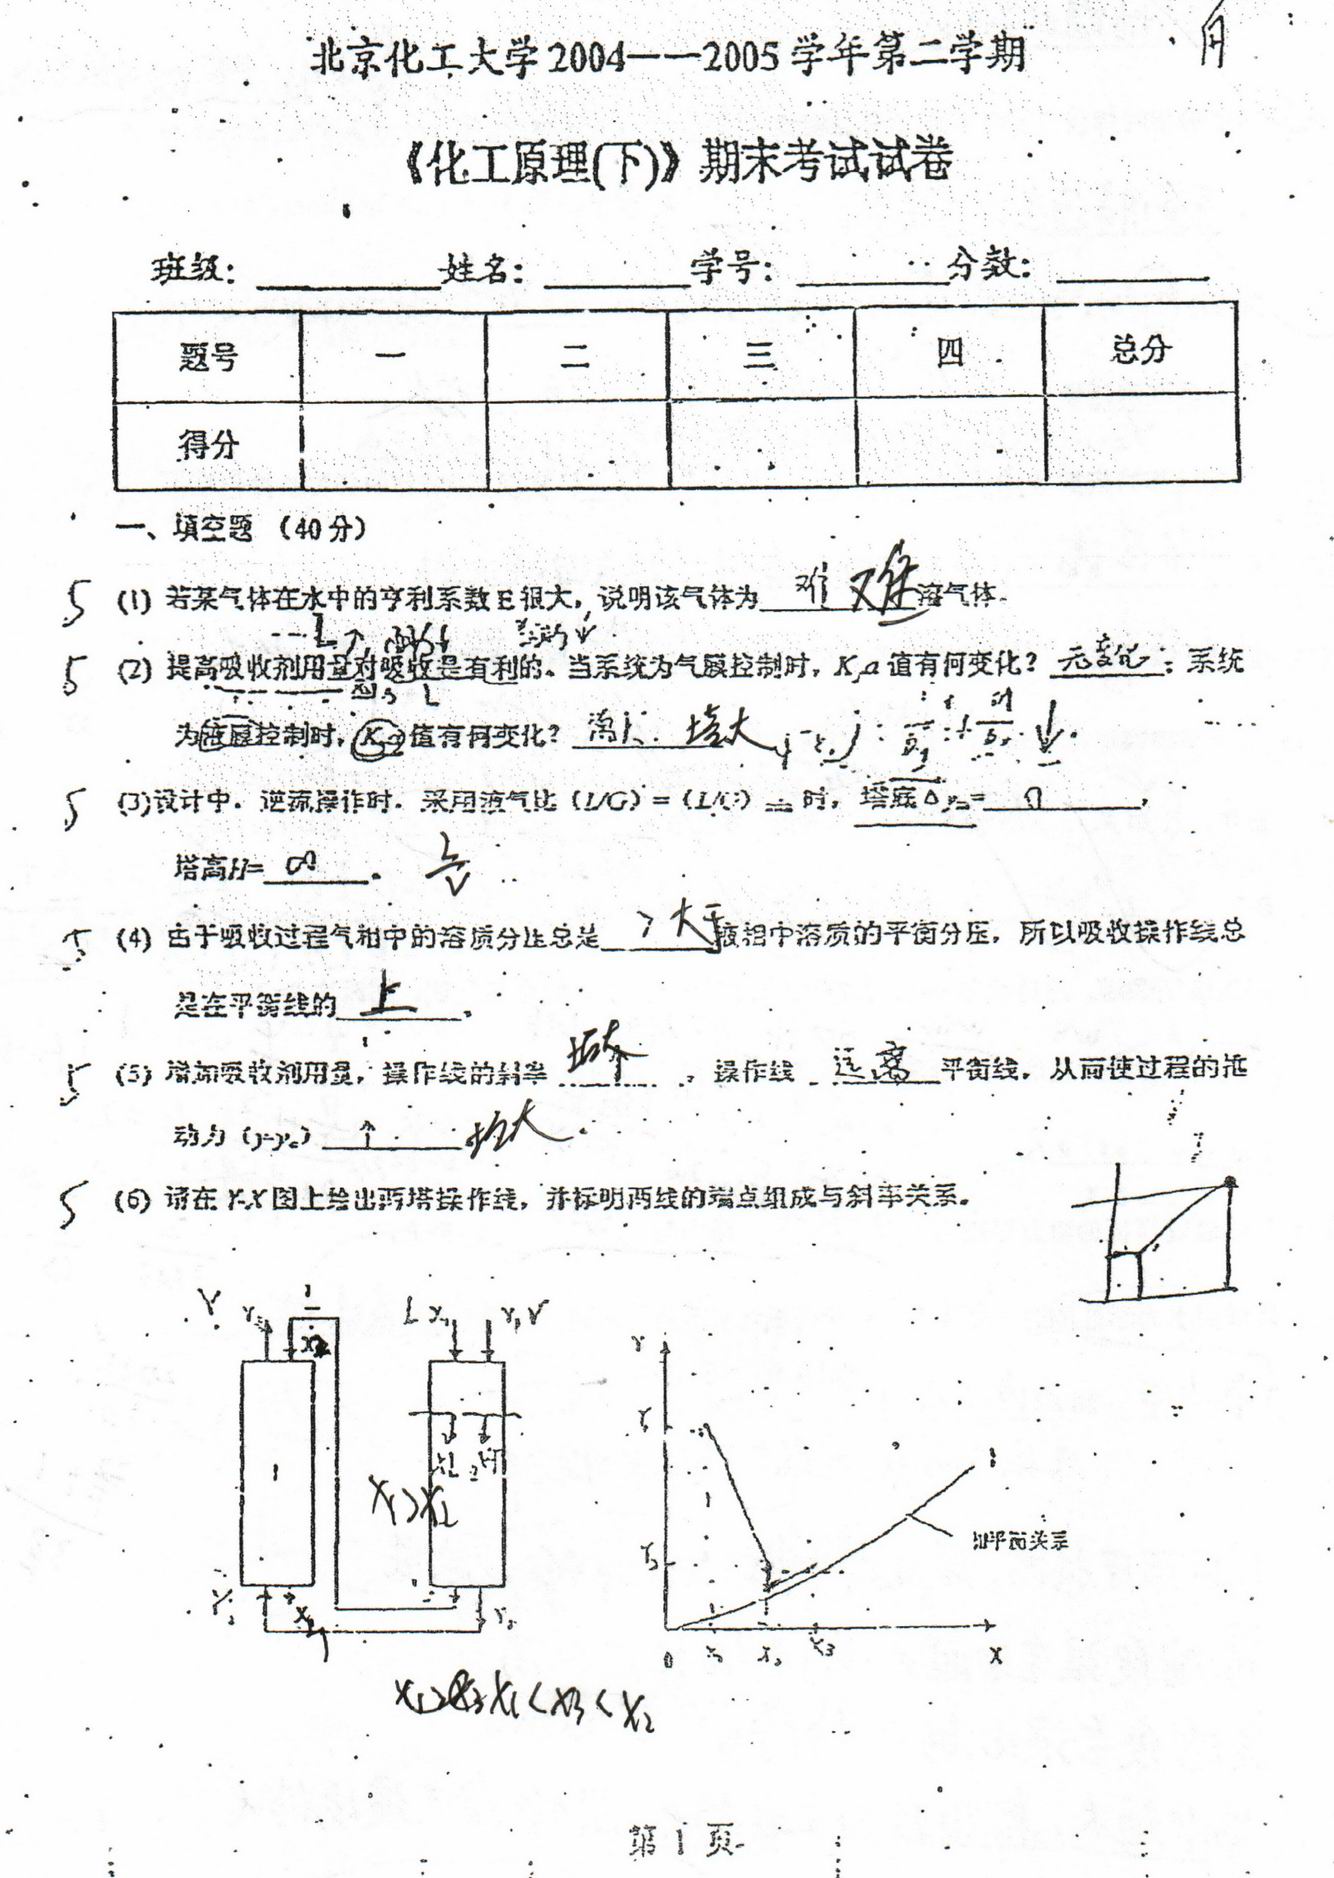 北京化工大学2004——2005学年第二学期
《化工原理(下)》期末考试试卷
班级: 姓名: 学号: 分数:
题号 一 二 三 四 总分
得分
一、填空题 (40分)
5 (1) 若某气体在水中的亨利系数E很大,说明该气体为 难 难 溶气体.
5 (2) 提高吸收剂用量对吸收是有利的。当系统为气膜控制时,Kya值有何变化? 无变化 ;系统
为液膜控制时,Kya值有何变化? 增大
5 (3)设计中.逆流操作时.采用液气比(L/G)=(L/G) 时,塔底Δy= 0 ,
塔高H= ∞ 。
5 (4) 由于吸收过程气相中的溶质分压总是 > 大于 液相中溶质的平衡分压,所以吸收操作线总
是在平衡线的 上 。
5 (5) 增加吸收剂用量,操作线的斜率 增大 ,操作线 远离 平衡线,从而使过程的推
动力(y-ye) ↑ 增大 .
5 (6) 请在Y-X图上绘出两塔操作线,并标明两线的端点组成与斜率关系。
V L X₁ Y₁ V
X₁>X₂
相平衡关系
0 X₃ X
X₁<X₃<X₂
第 1 页